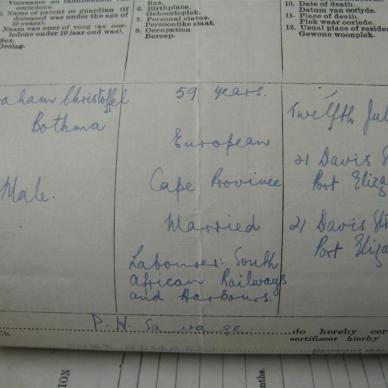 Voorname en familienaam van
oorledene.
3. Name of parent or guardian (if
deceased was under the age of
10 years).
Naam van ouer of voog (as oor-
ledene onder 10 jaar oud was).
Sex.
Geslag.
6. Birthplace.
Geboorteplek.
7. Personal status.
Persoonlike staat.
8. Occupation
Beroep.
10. Date of death.
Datum van oorlyde.
11. Place of death.
Plek waar oorlede.
12. Usual place of residen
Gewone woonplek.
raham Christoffel
Bothma
Male.
59 years.
European
Cape Province
Married
Labourer: South
African Railways
and Harbours.
Twelfth Jul
21 Davis St
Port Eliza
21 Davis Str
Port Eliza
P. H. Sa
do hereby cer
sertifiseer hierby